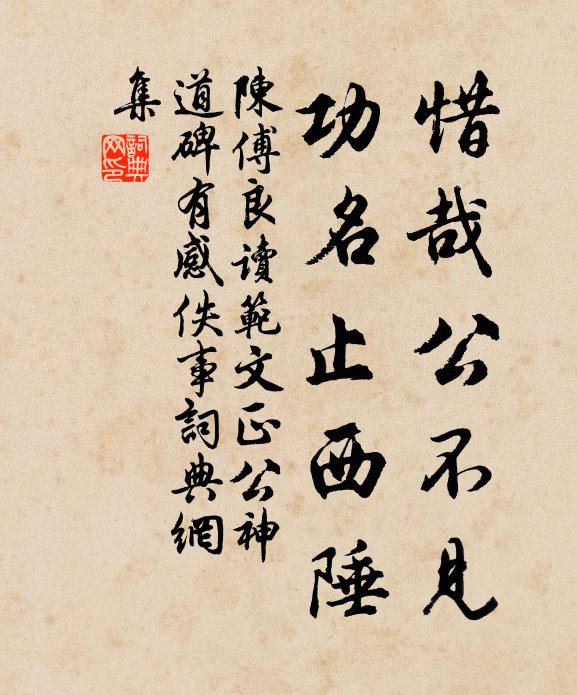 惜哉公不見
功名止西陲
陳傅良讀範文正公神
道碑有感佚事詞典網
集
詞典
网印